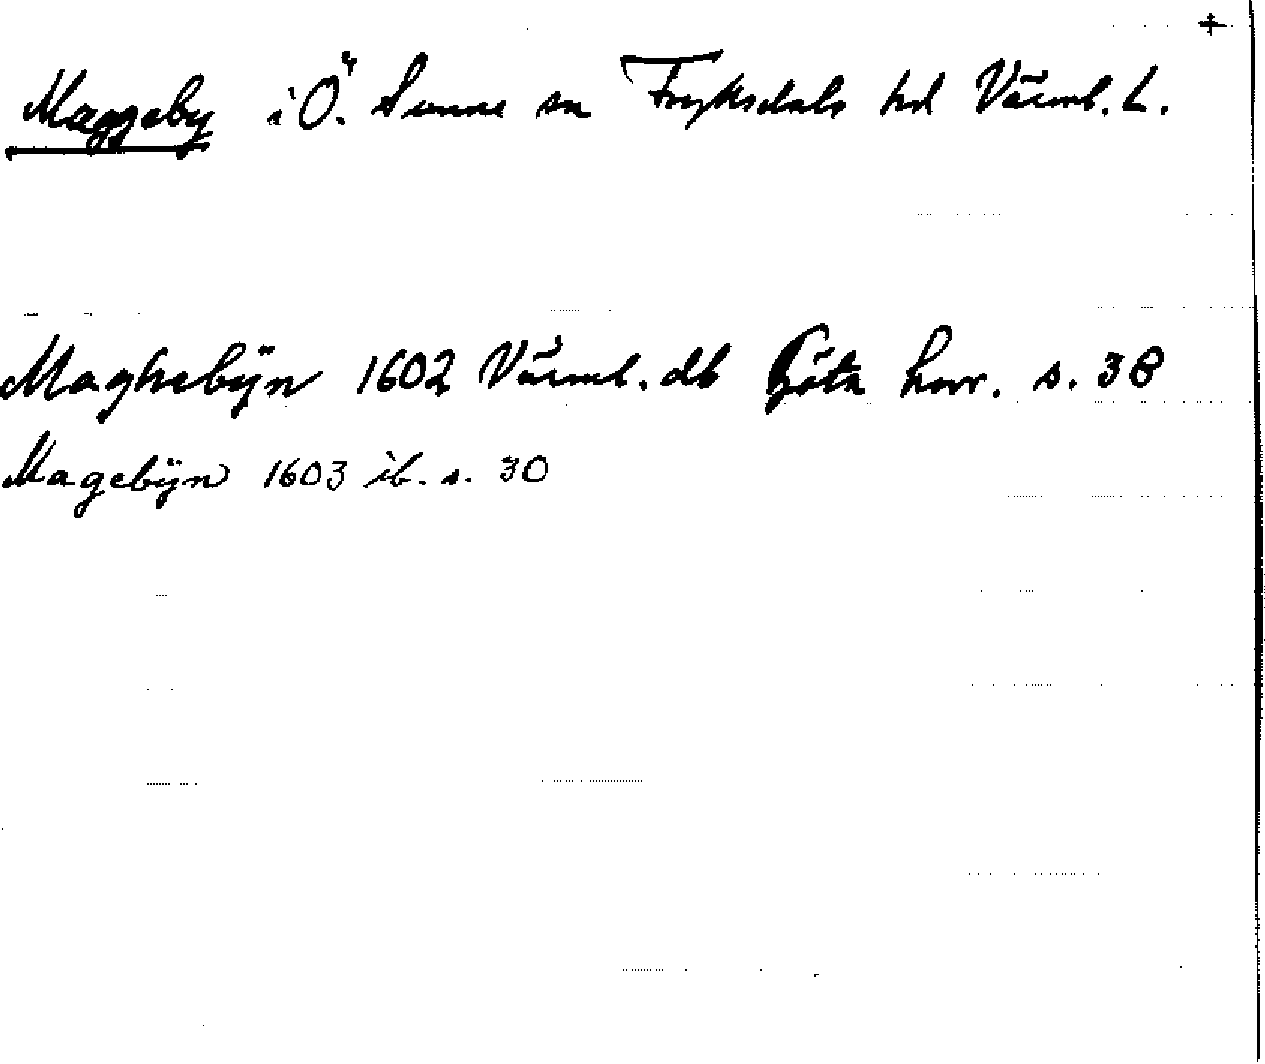 +
Maggeby i Ö. Sunne sn Fryksdals hd Värml. L.
Maghebÿn 1602 Värml. db Göta hovr. s. 38
Magebÿn 1603 ib. s. 30